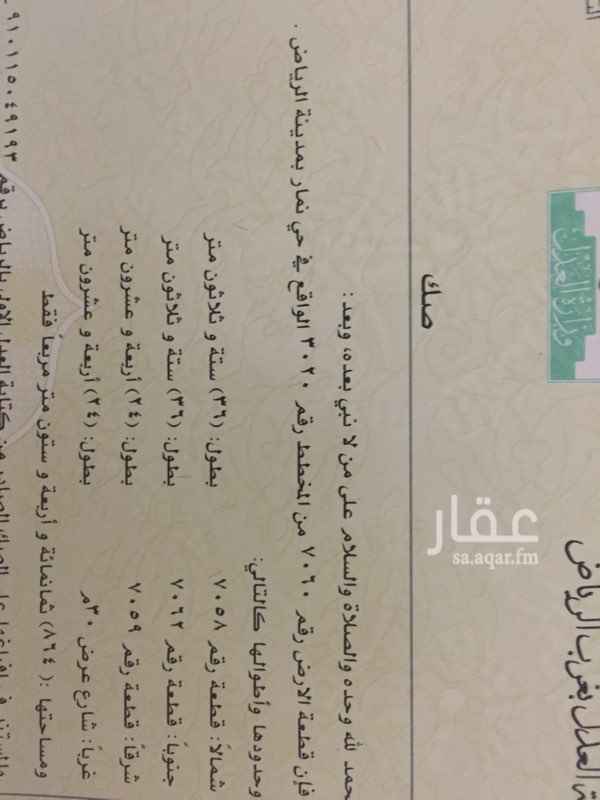 وزارة العدل
العدل بغرب الرياض
صك
حمد لله وحده والصلاة والسلام على من لا نبي بعده، وبعد:
فإن قطعة الارض رقم ٧٠٦٠ من المخطط رقم ٣٠٢٠ الواقع في حي نمار بمدينة الرياض .
وحدودها وأطوالها كالتالي:
شمالاً: قطعة رقم ٧٠٥٨ بطول: (٣٦) ستة و ثلاثون متر
جنوباً: قطعة رقم ٧٠٦٢ بطول: (٣٦) ستة و ثلاثون متر
شرقاً: قطعة رقم ٧٠٥٩ بطول: (٢٤) أربعة و عشرون متر
غرباً: شارع عرض ٣٠م بطول: (٢٤) أربعة و عشرون متر
ومساحتها :( ٨٦٤) ثمانمائة و أربعة و ستون متر مربعاً فقط
والمستند في افراغها على الصك الصادر من كتابة العدل الاولى بالرياض برقم ٩١٠١١٥٠٤٩١٩٣
عقار
sa.aqar.fm